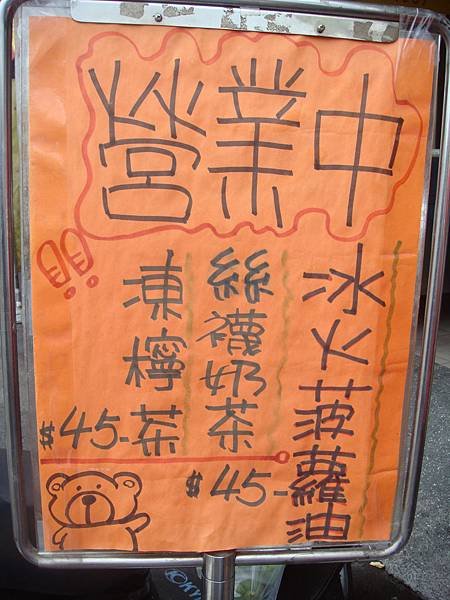 營業中
冰火菠蘿油
絲襪奶茶
$45-
凍檸茶
$45-
!!